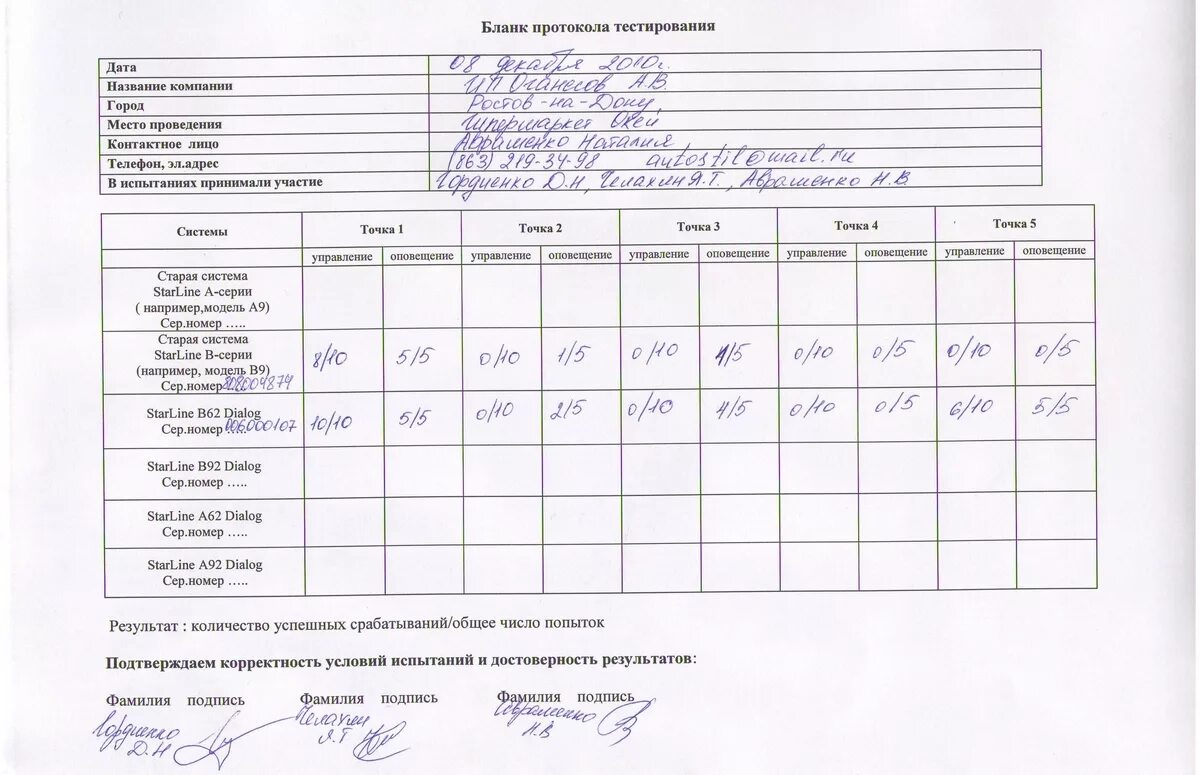 Бланк протокола тестирования
Дата 08 декабря 2010г.
Название компании ИП Оганесов А.В.
Город Ростов-на-Дону,
Место проведения Гипермаркет Окей
Контактное лицо Аврашенко Наталия
Телефон, эл.адрес (863) 219-34-98 autostil@mail.ru
В испытаниях принимали участие Гордиенко Д.Н, Пелахин Я.Т., Аврашенко Н.В.
Системы Точка 1 Точка 2 Точка 3 Точка 4 Точка 5
управление оповещение управление оповещение управление оповещение управление оповещение управление оповещение
Старая система
StarLine А-серии
( например,модель А9)
Сер.номер …..
Старая система
StarLine В-серии
(например, модель В9)
Сер.номер
8/10 5/5 0/10 1/5 0/10 4/5 0/10 0/5 0/10 0/5
StarLine B62 Dialog
Сер.номер ….. 006000107
10/10 5/5 0/10 2/5 0/10 4/5 0/10 0/5 6/10 5/5
StarLine B92 Dialog
Сер.номер …..
StarLine A62 Dialog
Сер.номер …..
StarLine A92 Dialog
Сер.номер …..
Результат : количество успешных срабатываний/общее число попыток
Подтверждаем корректность условий испытаний и достоверность результатов:
Фамилия подпись Фамилия подпись Фамилия подпись
Гордиенко Пелахин Аврашенко
Д.Н Я.Т Н.В